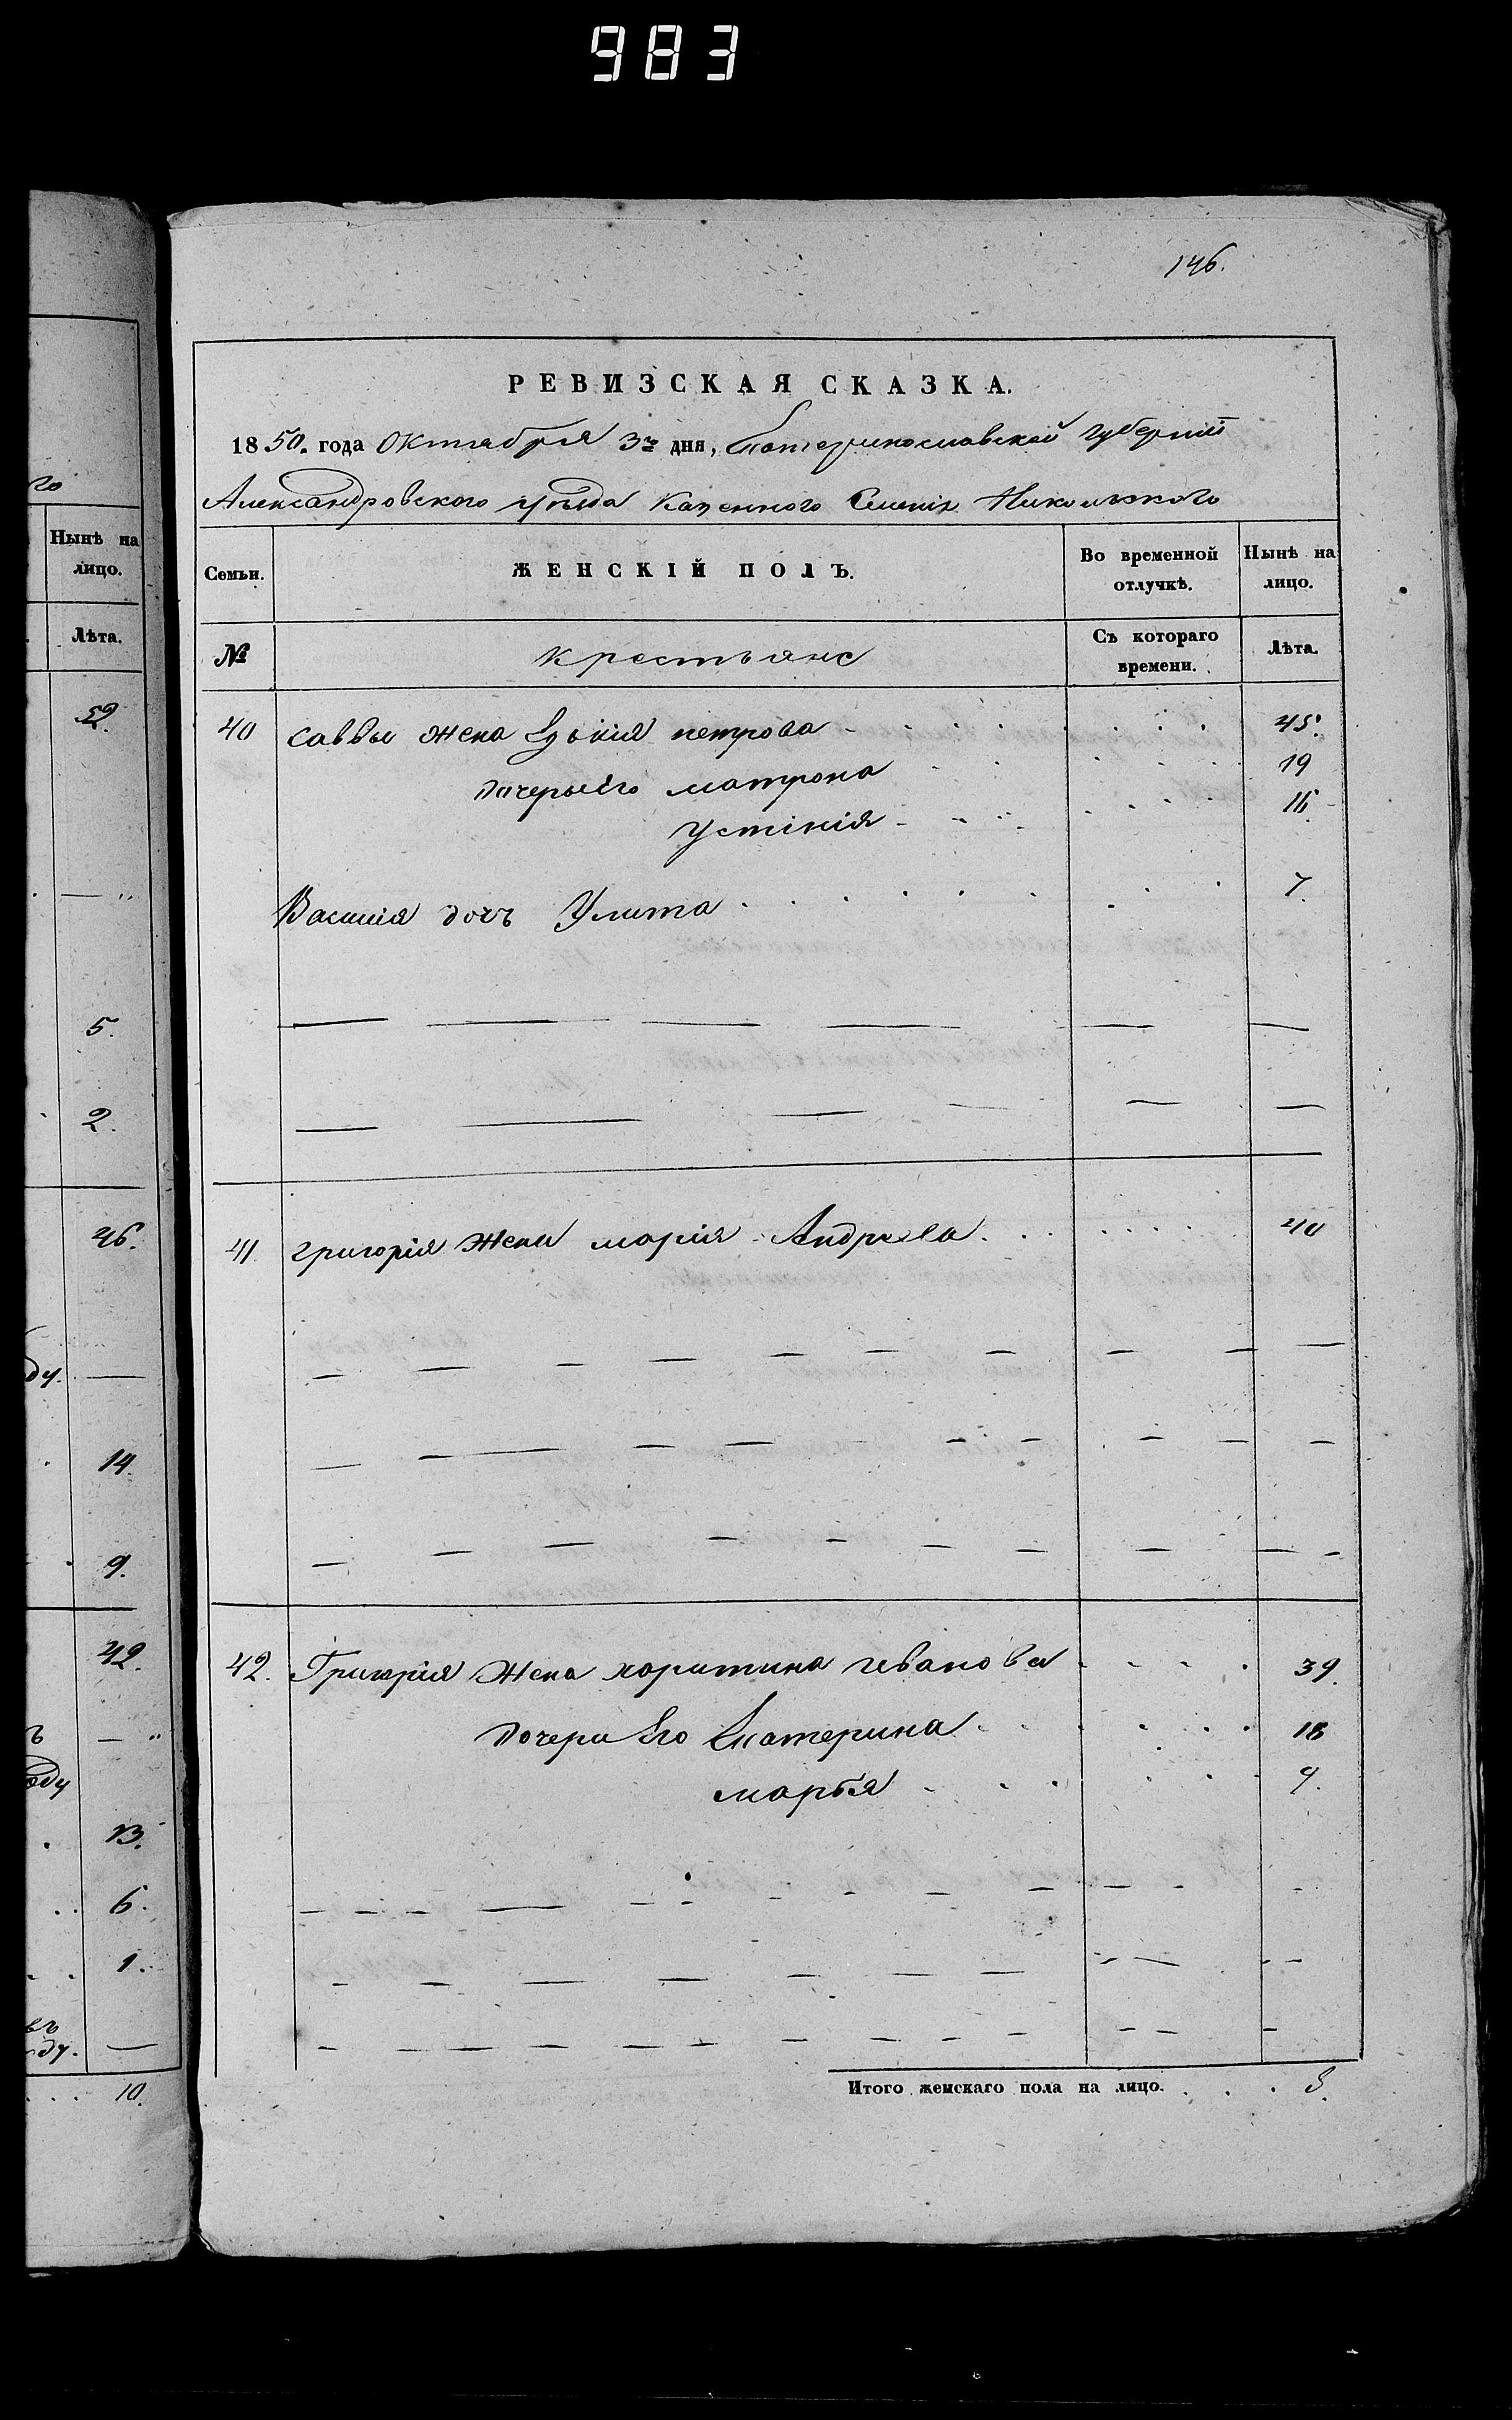 983
го
Нынѣ на
лицо.
Лѣта.
52.
5.
2.
46.
ду.
14.
9.
42.
ъ
оду
13.
6.
1.
въ
ду.
10.
146.
РЕВИЗСКАЯ СКАЗКА.
1850. года Октября 3го дня, Екатеринославской губерніи
Александровского уѣзда Казенного Селенія Никольского
Семьи. ЖЕНСКІЙ ПОЛЪ. Во временной отлучкѣ. Нынѣ на лицо.
№ крестьяне Съ котораго времени. Лѣта.
40 саввы жена петрова 45.
дочери Его матрона 19
Устінія
Василія дочь Улита 7.
41. григорія жена марія Андреева 40
42. Григорія жена харитина 39.
дочери Его Екатерина 18
марѳя 9.
Итого женскаго пола на лицо. 8.